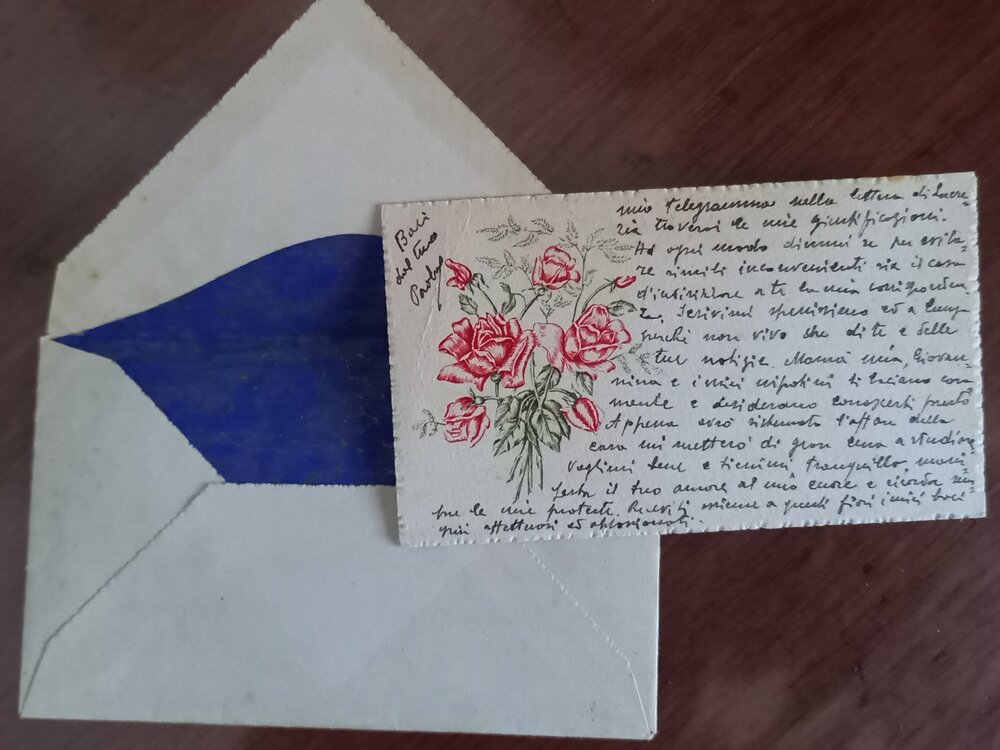 Baci
dal tuo
Paolo
mio telegramma nella lettera di Lucre-
zia troverai le mie giustificazioni.
Ad ogni modo dimmi se per evita-
re simili inconvenienti sia il caso
d'indirizzare a te la mia corrisponden-
za. Scrivimi spessissimo ed a lungo
perché non vivo che di te e delle
tue notizie. Mamà mia, Giovan-
nina e i miei nipotini ti baciano cara-
mente e desiderano conoscerti presto
Appena avrò sistemato l'affare della
casa mi metterò di gran lena a studiare
Vogliimi bene e tienimi tranquillo, mani-
festa il tuo amore al mio cuore e ricorda sem-
pre le mie proteste. Ricevi insieme a questi fiori i miei baci
più affettuosi ed appassionati.